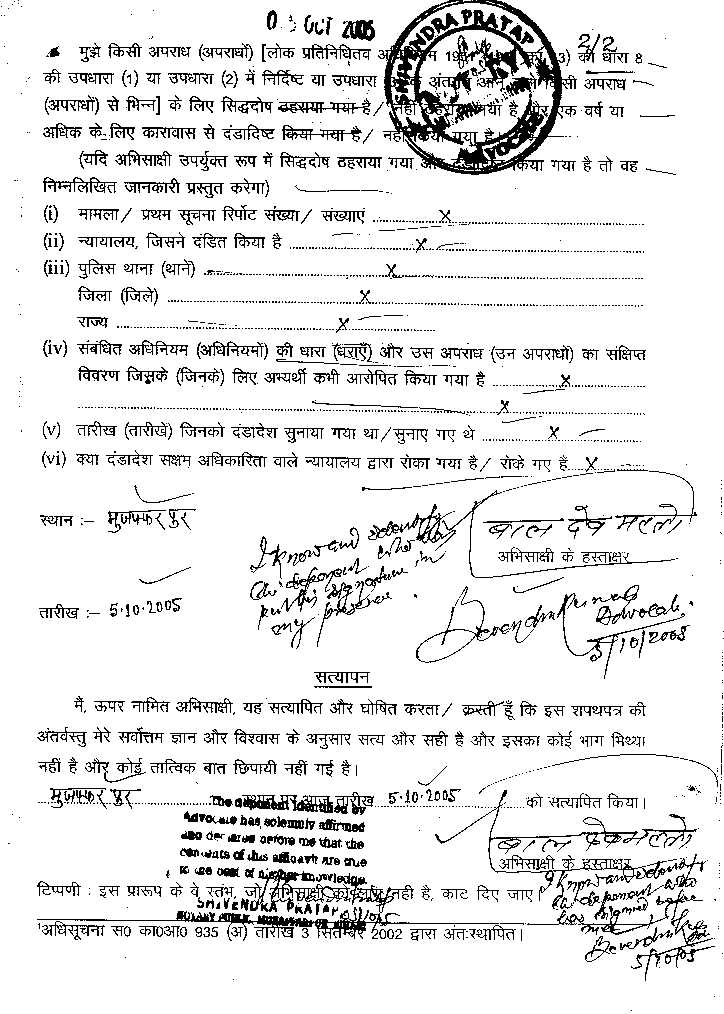 0 5 OCT 2005
2/2
मुझे किसी अपराध (अपराधों) [लोक प्रतिनिधितव 3) की धारा 8
की उपधारा (1) या उपधारा (2) में निर्दिष्ट या उपधारा किसी अपराध
(अपराधों) से भिन्न] के लिए सिद्धदोष ठहराया गया है/ नहीं ठहराया गया है एक वर्ष या
अधिक के लिए कारावास से दंडादिष्ट किया गया है/ नहीं किया गया है।
SHIVENDRA PRATAP
ADVOCATE
(यदि अभिसाक्षी उपर्युक्त रूप में सिद्धदोष ठहराया गया और दंडादिष्ट किया गया है तो वह
निम्नलिखित जानकारी प्रस्तुत करेगा)
(i) मामला/ प्रथम सूचना रिर्पोट संख्या/ संख्याएं X
(ii) न्यायालय, जिसने दंडित किया है X
(iii) पुलिस थाना (थानें) X
जिला (जिले) X
राज्य X
(iv) संबंधित अधिनियम (अधिनियमों) की धारा (धराएँ) और उस अपराध (उन अपराधों) का संक्षिप्त
विवरण जिसके (जिनके) लिए अभ्यर्थी कभी आरोपित किया गया है X
X
(v) तारीख (तारीखें) जिनको दंडादेश सुनाया गया था/सुनाए गए थे X
(vi) क्या दंडादेश सक्षम अधिकारिता वाले न्यायालय द्वारा रोका गया है/ रोके गए है X
स्थान :- मुजफ्फरपुर
I know and identify
the deponent who has
put his signature in
my presence.
बाल देव मल्लो
अभिसाक्षी के हस्ताक्षर
तारीख :- 5.10.2005
Devendra Kumar
Advocate.
5/10/2005
सत्यापन
मैं, ऊपर नामित अभिसाक्षी, यह सत्यापित और घोषित करता/ करती हूँ कि इस शपथपत्र की
अंतर्वस्तु मेरे सर्वोत्तम ज्ञान और विश्वास के अनुसार सत्य और सही है और इसका कोई भाग मिथ्या
नहीं है और कोई तात्विक बात छिपायी नहीं गई है।
मुजफ्फरपुर स्थान पर आज तारीख 5.10.2005 को सत्यापित किया।
The deponent identified by
Advocate has solemnly affirmed
and declared before me that the
contents of this affidavit are true
to the best of his/her knowledge.
SHIVENDRA PRATAP
अभिसाक्षी के हस्ताक्षर
I know and identify
the deponent who
has signed before
me
5/10/05
टिप्पणी : इस प्रारूप के वे स्तंभ, जो अभिसाक्षी को लागू नही है, काट दिए जाए।
¹अधिसूचना स0 का0आ0 935 (अ) तारीख 3 सितम्बर 2002 द्वारा अंतःस्थापित।